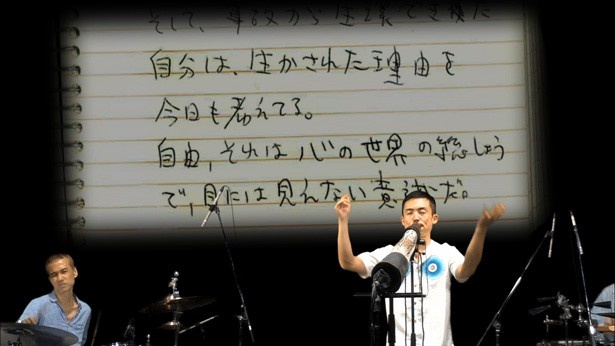 そして、事故から生還できた
自分は、生かされた理由を
今日も考えてる。
自由、それは心の世界の総しょう
で、目には見えない意識だ。